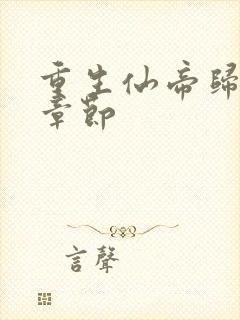 重生仙帝歸
章節
言聲